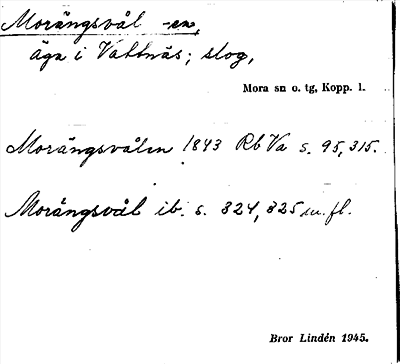 Morängsvål -en,
äga i Vattnäs; slog,
Mora sn o. tg, Kopp. l.
Morängsvålen 1843 Rb Va s. 95, 315.
Morängsvål ib. s. 324, 325 m. fl.
Bror Lindén 1945.